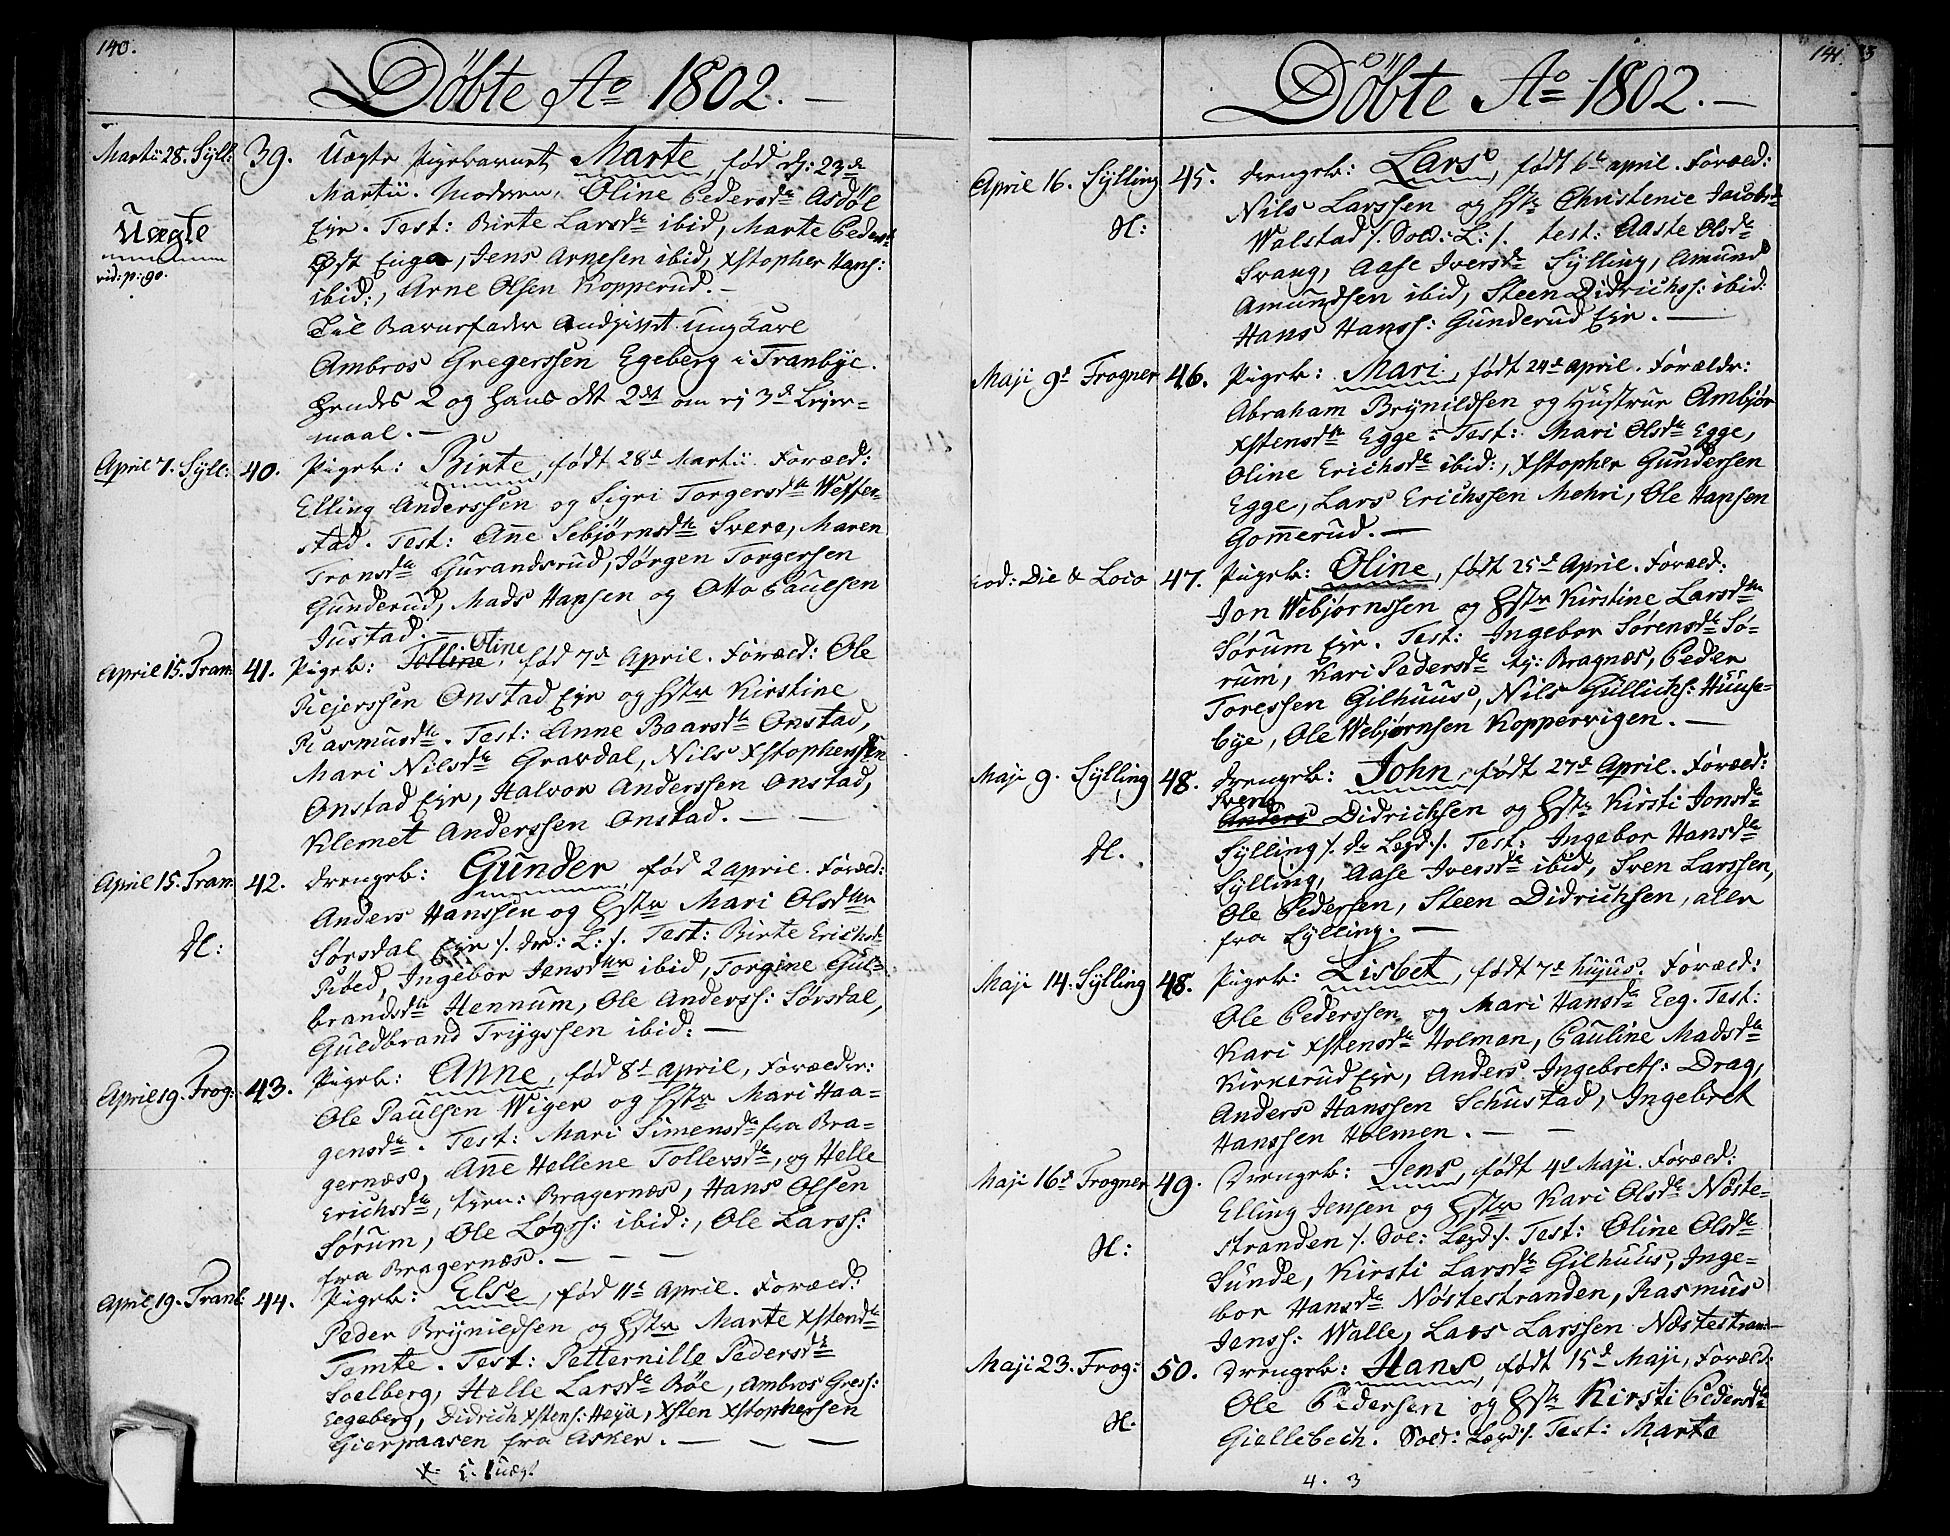 140.
Döbte Aº 1802. —
Martii 28. Syll: 39. Uægte Pigebarnet Marte, fød d: 23de
Martii. Moderen, Oline Pedersdr Asdöl
Eje. Test: Birte Larsdr ibid, Marte Pedersdr
Uægte
vid: p: 90.
Øst Enger, Jens Arnesen ibid, Xstopher Hans:
ibid:, Arne Olsen Kopperud. —
Til Barnefader Andgivet ung Karl
Ambros Gregerssen Egeberg i Tranbye.
Hendes 2 og hans dt 2det om ej 3de Lejer-
maal. —
April 7. Syll: 40. Pigeb: Birte, født 28d Martii. Foræld:
Elling Anderssen og Sigri Torgersdr Weffer-
stad. Test: Añe Sebjørnsdr Svere, Maren
Tronsdr Gurandsrud, Jørgen Torgersen
Gunderud, Mads Hansen og Otto Paulsen
Justad. —
Oline
April 15. Tran: 41. Pigeb: Tolline, fød 7d April. Foræld: Ole
Rejerssen Onstad Eje og Hstr Kirstine
Rasmusdr. Test: Anne Baarsdr Onstad,
Mari Nilsdr Gravdal, Nils Xstophersen
Onstad Eje, Halvor Anderssen Onstad,
Klemet Anderssen Onstad. — —
April 15. Tran: 42. Drengeb: Gunder, fød 2 april. Foræld:
Anders Hanssen og Hstr Mari Olsdtr
H:
Sørsdal Eje /. dr: L: /. Test: Birte Erichsdr
Röed, Ingebor Jensdtr ibid, Torgine Gul-
brandsdr Hennum, Ole Anderss: Sørsdal,
Guldbrand Trygssen ibid: —
April 19. Frog: 43. Pigeb: Anne, fød 8d april, Forælder:
Ole Paulsen Wiger og Hstr Mari Haa-
gensdr. Test: Mari Simensdr fra Bra-
gernæs, Añe Hellene Tollevsdr, og Helle
Erichsdr, tjen: Bragernæs, Hans Olsen
Sørum, Ole Løgs: ibid:, Ole Larss:
fra Bragernæs. — —
April 19. Tranb: 44. Pigeb: Else, fød 11t April. Foræld:
Peder Brynildsen og Hstr Marte Xstendr
Temte. Test: Petternille Pedersdr
Soelberg, Helle Larsdr Böe, Ambros Gres:
Eegeberg, Didrich Xstens: Heya, Xsten Xstophersen
Gierpaasen fra Asker. — — —
141.
Döbte Aº 1802. —
April 16. Sylling 45. Drengeb: Lars, født 6t april. Foræld:
Nils Larssen og Hstr Christence Jacobsdr
H:
Walstad /. Sold: L: /. test: Aaste Olsdr
Svang, Aase Iversdr Sylling, Amund
Amundsen ibid, Steen Didrichss: ibid:
Hans Hanss: Gunderud Eje. —
Maji 9d Frogner 46. Pigeb: Mari, født 24d april. Forældr:
Abraham Brynildsen og Hustrue Ambjør
Xstensdr Egge. Test: Mari Olsdr Egge,
Oline Erichsdr ibid:, Xstopher Gundersen
Egge, Lars Erichssen Mohri, Ole Hansen
Gom̃erud. —
eod: Die & Loco 47. Pigeb: Oline, født 25d April. Foræld:
Jon Webjørnssen og Hstr Kirstine Larsdtr
Sørum Eje. Test: Ingebor Sørensdr Sö-
rum, Kari Pedersdr tj: Bragnæs, Peder
Toressen Gilhuus, Nils Gullichs: Huuse-
bye, Ole Webjørnsen Koppervigen. —
Maji 9. Sylling 48. Drengeb: John, født 27d April. Foræld:
Svend
Anders Didrichsen og Hstr Kirsti Jonsdr
H.
Sylling /. dr Legd /. Test: Ingebor Hansdr
Sylling, Aase Iversdr ibid, Sven Larssen,
Ole Pedersen, Steen Didrichsen, alle
fra Sylling. —
Maji 14. Sylling 48. Pigeb: Lisbet, født 7d hujus. Foræld:
Ole Pederssen og Mari Hansdr Eeg. Test:
Kari Xstensdr Holman, Pauline Madsdr
Kirkerud Eje, Anders Ingebrets: Drag,
Anders Hanssen Schustad, Ingebret
Hanssen Holmen. — —
Maji 16d Frogner 49. Drengeb: Jens, født 4d Maji. Foræld:
Elling Jensen og Hstr Kari Olsdr Nöste-
H:
stranden /. Sol: Legd /. Test: Oline Olsdr
Sunde, Kirsti Larsdr Gilhuus, Inge-
bor Hansdr Nöstestranden, Rasmus
Jenss: Walle, Lars Larssen Næstestran:
Maji 23. Frog: 50. Drengeb: Hans, født 15d Maji, Foræld:
Ole Pedersen og Hstr Kirsti Pedersdr
H.
Giellebech. Sold: Legd /. Test: Marte
4. 3